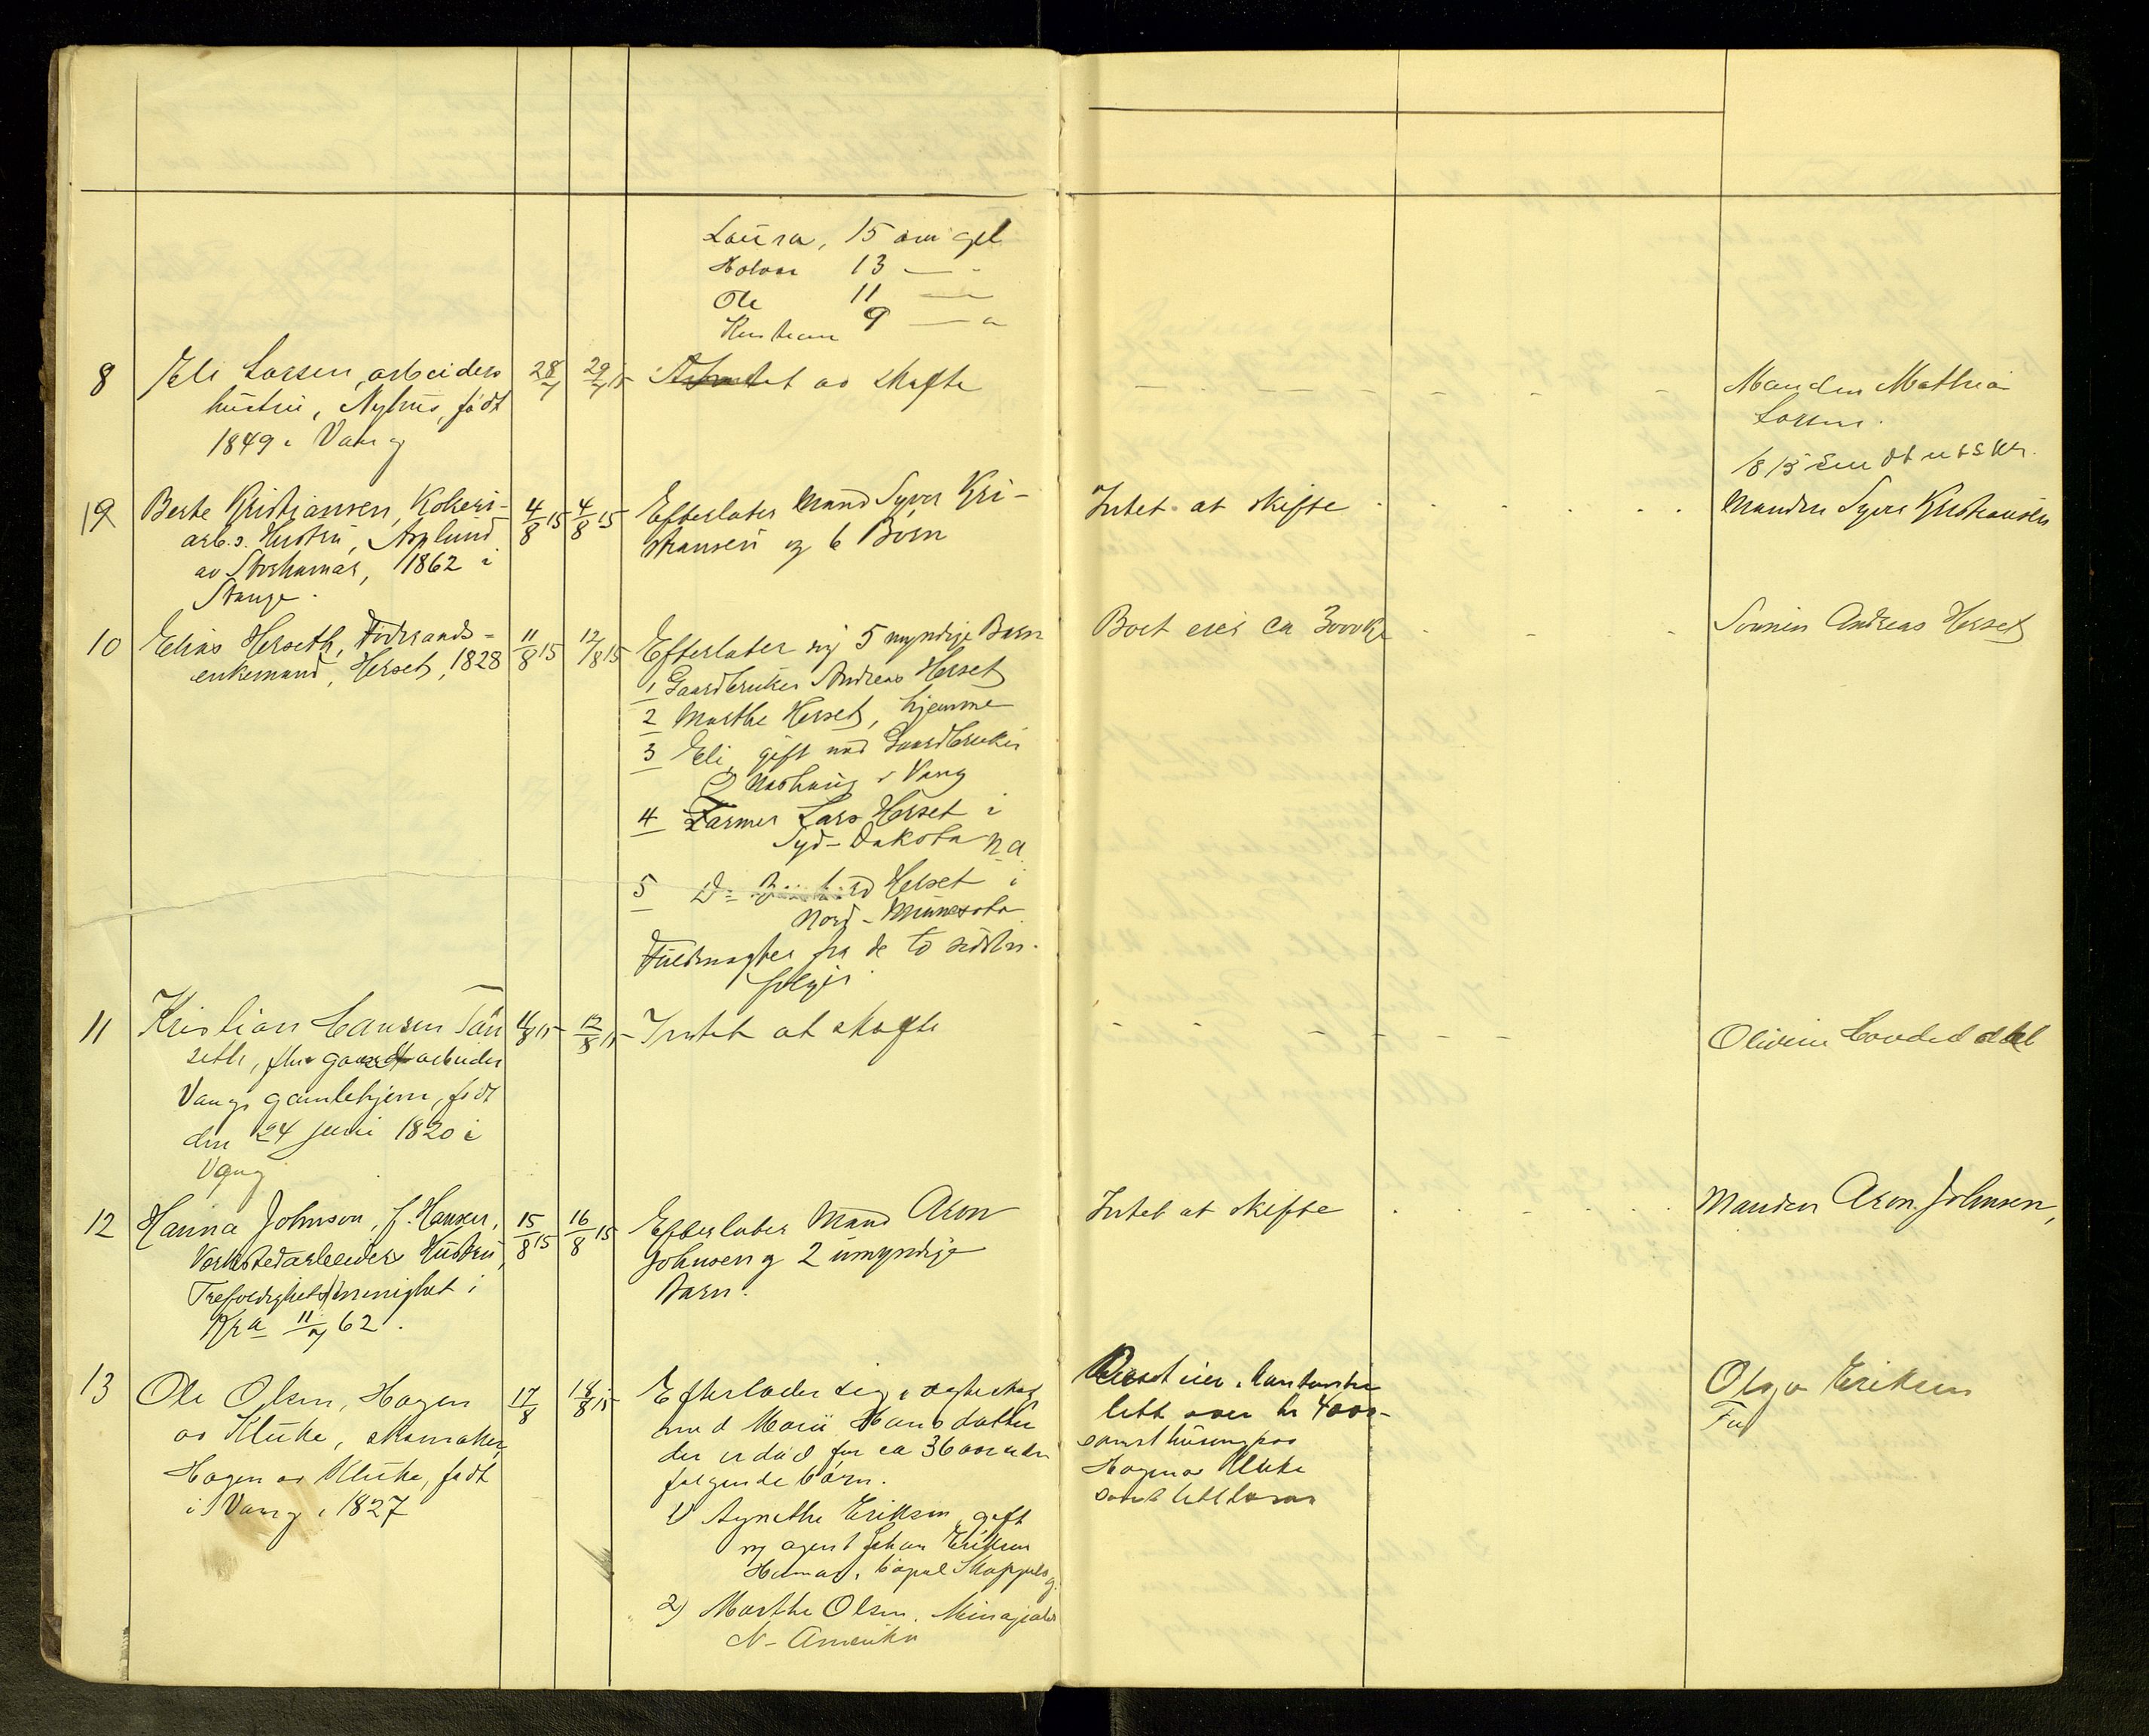 Laura, 15 aar gl.
13 — "
Ole 11 — "
Kristian 9 — "
8 Eli Larsen, arbeiders
hustru, Nyhus, født
1849 i Vang
28/7 29/7 15
at skifte
Manden Mathias
Larsen.
9 Berte Kristiansen, Kokeri-
arb.s. Hustru, Asplund
av Storhamar, 1862 i
Stange.
4/8 15 4/8 15
Efterlater Mand Syver Kri-
stiansen og 6 Børn
Intet at skifte
Manden Syver Kristiansen
10 Elias Herseth, Føderaads-
enkemand, Herset, 1828
11/8 15 12/8 15
Efterlater sig 5 myndige Børn
1 Gaardbruker Andreas Herset
2 Marthe Herset, hjemme
3 Eli, gift med Gaardbruker
i Vang
4 Farmer Lars Herset i
Syd-Dakota N.A.
5 Do Herset i
Nord-Minnesota
Fuldmagter fra de to sidste
følger
Boet eier ca 3000 Kr
Sønnen Andreas Herset
11 Kristian Hansen Tan
sæth, fhv gaardarbeider
Vangs gamlehjem, født
den 24 juni 1820 i
Vang
4/8 15 12/8 15
Intet at skifte
Olivine
12 Hanna Johnsen, f. Hansen,
Verkstedarbeiders Hustru,
Trefoldighets menighet i
Kra 11/7 62.
15/8 15 16/8 15
Efterlater Mand Aron
Johnsen og 2 umyndige
Barn.
Intet at skifte
Manden Aron Johnsen,
13 Ole Olsen, Hagen
av Kluke, skomaker,
Hagen av Kluke, født
i Vang i 1827
17/8 18/8 15
Efterlader sig i egteskap
med Marie Hansdatter
der er død for ca 36 aar siden
følgende børn.
1) Agnethe Eriksen, gift
m agent Johan Eriksen
Hamar,
2) Marthe Olsen, Mineapolis
N-Amerika
Boet eier i kontanter
litt over kr 4000-
samt husene paa
Hagen av Kluke
samt litt løsøre
Olga Eriksen